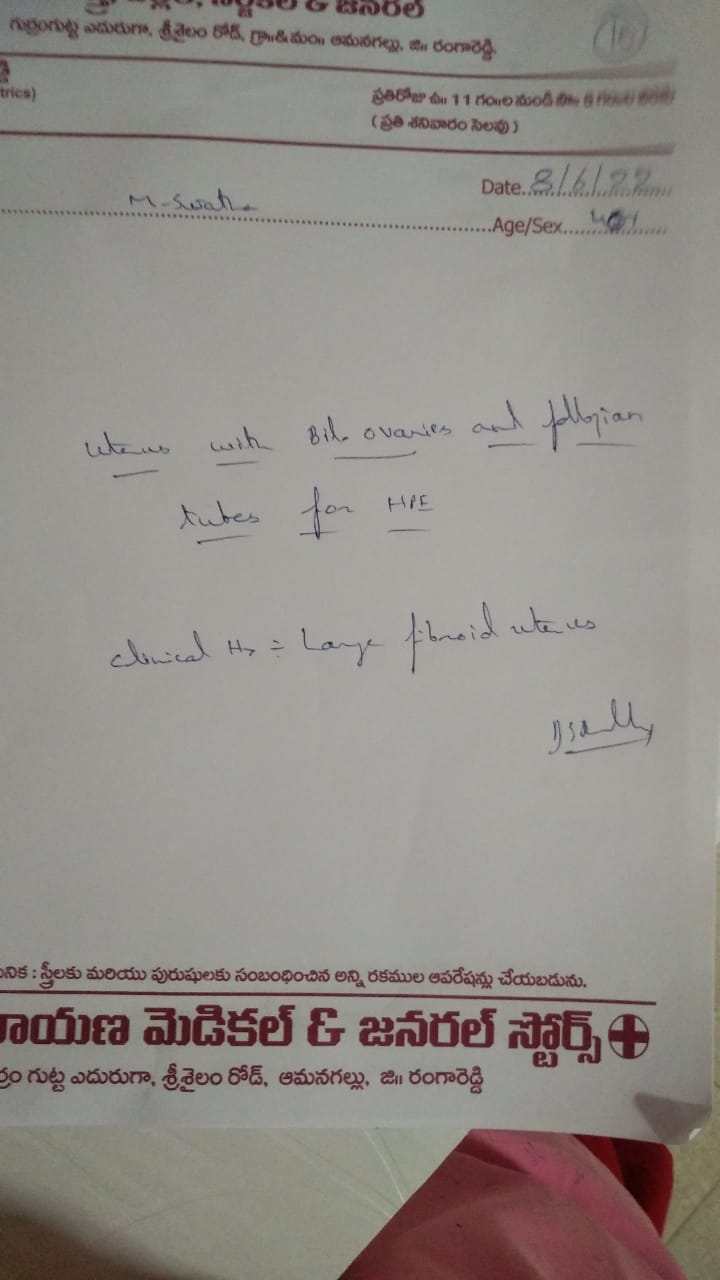 & జనరల్
గుర్రంగుట్ట ఎదురుగా, శ్రీశైలం రోడ్, గ్రా॥&మం॥ ఆమనగల్లు, జి॥ రంగారెడ్డి.
10
trics)
ప్రతిరోజు ఉ॥ 11 గం॥ల నుండి
( ప్రతి శనివారం సెలవు )
Date..8/6/22
M-Swathe
Age/Sex
uterus with Bil. ovaries and fallopian
tubes for HPE
clinical Hx ÷ Large fibroid uterus
నిక : స్త్రీలకు మరియు పురుషులకు సంబంధించిన అన్ని రకముల ఆపరేషన్లు చేయబడును.
రాయణ మెడికల్ & జనరల్ స్టోర్స్
గుట్ట ఎదురుగా, శ్రీశైలం రోడ్, ఆమనగల్లు, జి॥ రంగారెడ్డి